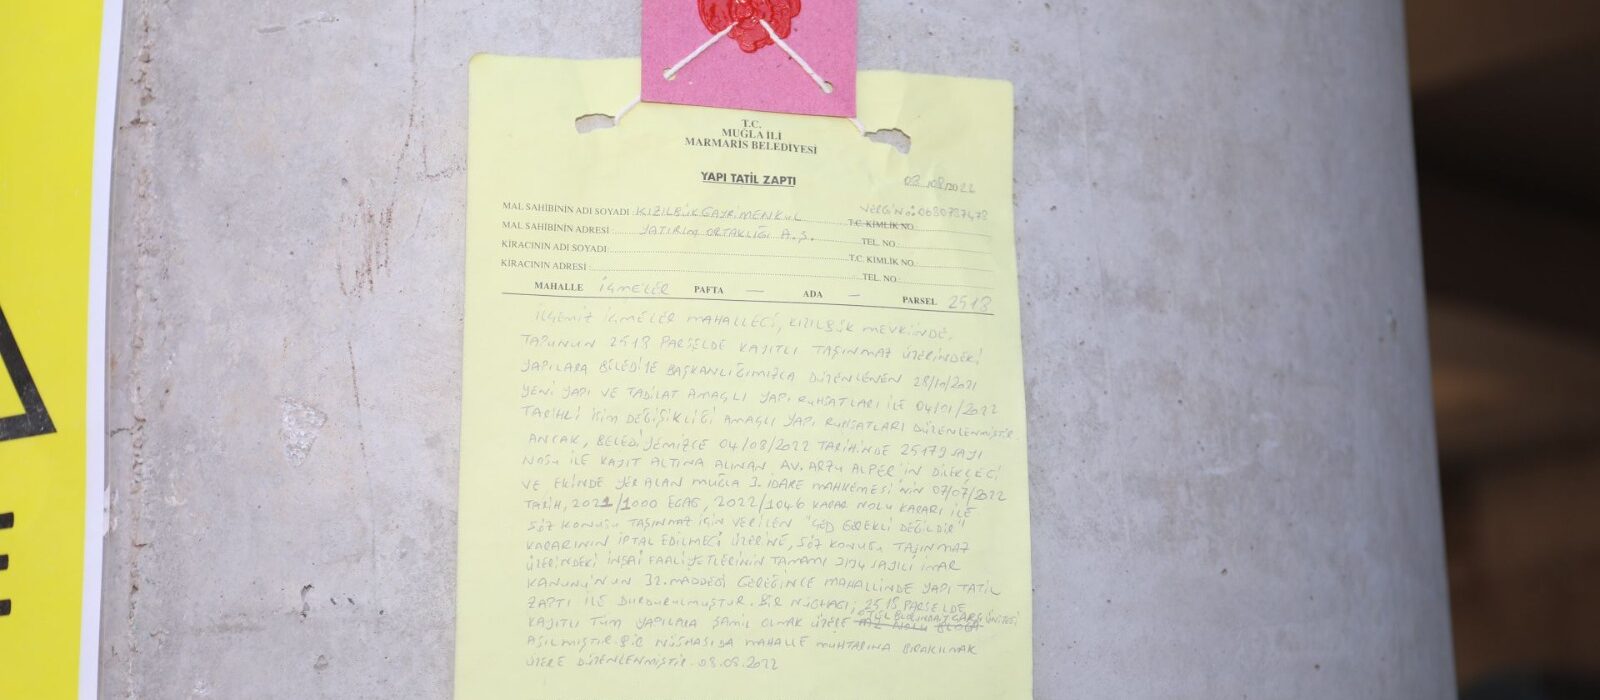 T.C.
MUĞLA İLİ
MARMARİS BELEDİYESİ
YAPI TATİL ZAPTI
08/08/2022
MAL SAHİBİNİN ADI SOYADI : KIZILBÜK GAYRİMENKUL VERGİ No: 0680787478 T.C. KİMLİK NO.
MAL SAHİBİNİN ADRESİ : YATIRIM ORTAKLIĞI A.Ş. TEL. NO.
KİRACININ ADI SOYADI: T.C. KİMLİK NO.
KİRACININ ADRESİ : TEL. NO.
MAHALLE İÇMELER PAFTA — ADA — PARSEL 2518
İLÇEMİZ İÇMELER MAHALLESİ, KIZILBÜK MEVKİİNDE,
TAPUNUN 2518 PARSELDE KAYITLI TAŞINMAZ ÜZERİNDEKİ
YAPILARA BELEDİYE BAŞKANLIĞIMIZCA DÜZENLENEN 28/10/2021
YENİ YAPI VE TADİLAT AMAÇLI YAPI RUHSATLARI İLE 04/01/2022
TARİHLİ İSİM DEĞİŞİKLİĞİ AMAÇLI YAPI RUHSATLARI DÜZENLENMİŞTİR
ANCAK, BELEDİYEMİZCE 04/08/2022 TARİHİNDE 25179 SAYI
NOSU İLE KAYIT ALTINA ALINAN AV. ARZU ALPER'İN DİLEKÇESİ
VE EKİNDE YER ALAN MUĞLA 3. İDARE MAHKEMESİ'NİN 07/07/2022
TARİH, 2021/1000 ESAS, 2022/1046 KARAR NOLU KARARI İLE
SÖZ KONUSU TAŞINMAZ İÇİN VERİLEN "ÇED GEREKLİ DEĞİLDİR"
KARARININ İPTAL EDİLMESİ ÜZERİNE, SÖZ KONUSU TAŞINMAZ
ÜZERİNDEKİ İNŞAİ FAALİYETLERİNİN TAMAMI 3194 SAYILI İMAR
KANUNU'NUN 32. MADDESİ GEREĞİNCE MAHALLİNDE YAPI TATİL
ZAPTI İLE DURDURULMUŞTUR. BİR NÜSHASI, 2518 PARSELDE
KAYITLI TÜM YAPILARA ŞAMİL OLMAK ÜZERE NOLU BLOĞA
AŞILMIŞTIR. BİR NÜSHASI DA MAHALLE MUHTARINA BIRAKILMAK
ÜZERE DÜZENLENMİŞTİR. 08.08.2022